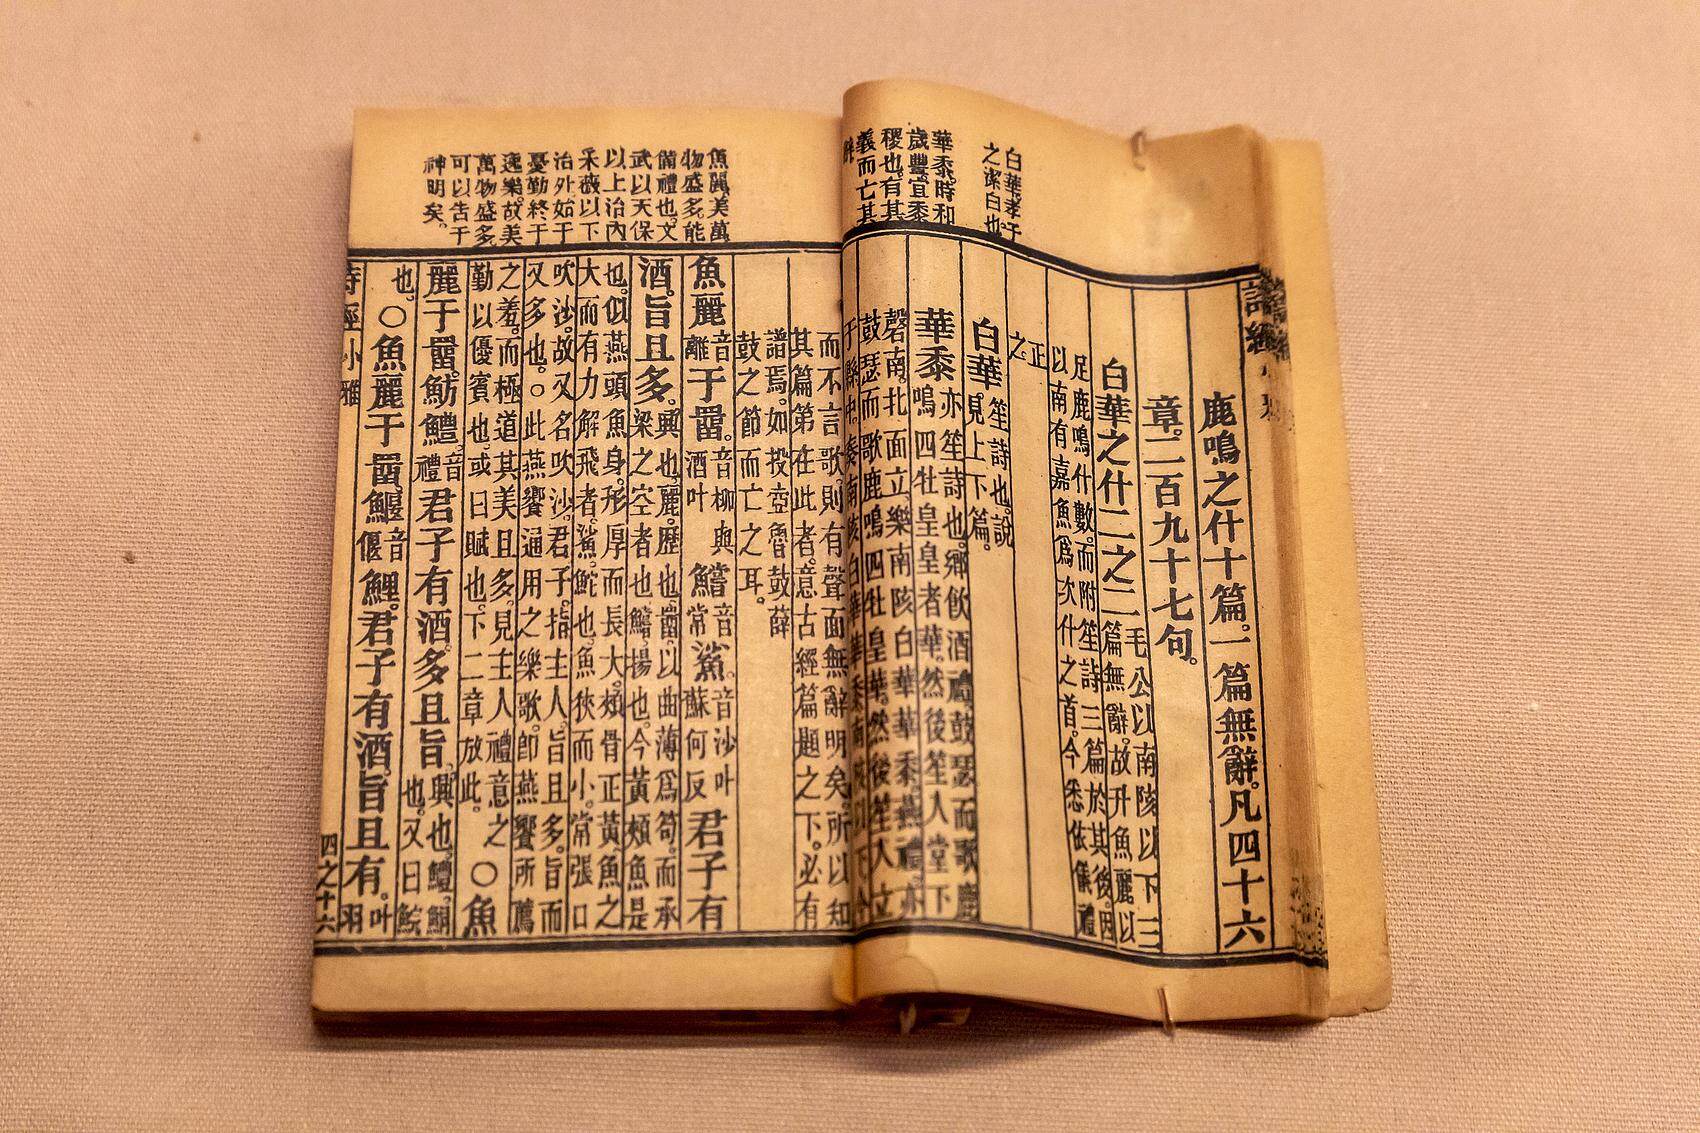 白華孝子
之潔白也
華黍時和
歲豐宜黍
稷也有其
義而亡其
鹿鳴之什十篇一篇無辭凡四十六
章二百九十七句
白華之什二之二
毛公以南陔以下三
篇無辭故升魚麗以
足鹿鳴什數而附笙詩三篇於其後因
以南有嘉魚爲次什之首今悉依儀禮
正
之
白華
笙詩也說
見上下篇
華黍
亦笙詩也鄉飮酒禮鼓瑟而歌鹿
鳴四牡皇皇者華然後笙入堂下
磬南北面立樂南陔白華華黍燕禮亦
鼓瑟而歌鹿鳴四牡皇華然後笙入立
魚麗美萬
物盛多能
備禮也文
武以天保
以上治內
采薇以下
治外始于
憂勤終于
逸樂故美
萬物盛多
可以告于
神明矣
而不言歌則有聲而無辭明矣所以知
其篇第在此者意古經篇題之下必有
譜焉如投壺魯鼓薛
鼓之節而亡之耳
魚麗音離于罶音柳與酒叶鱨音常鯊音沙叶蘇何反君子有
酒旨且多興也麗歷也罶以曲薄爲笱而承梁之空者也鱨揚也今黃頰魚是
也似燕頭魚身形厚而長大頰骨正黃魚之
大而有力解飛者鯊鮀也魚狹而小常張口
吹沙故又名吹沙君子指主人旨且多旨而
又多也○此燕饗通用之樂歌卽燕饗所薦
之羞而極道其美且多見主人禮意之
勤以優賓也或曰賦也下二章放此○魚
麗于罶魴鱧音禮君子有酒多且旨興也鱧鮦也又曰鯇
也○魚麗于罶鰋音偃鯉君子有酒旨且有叶羽
詩經小雅
四之十六